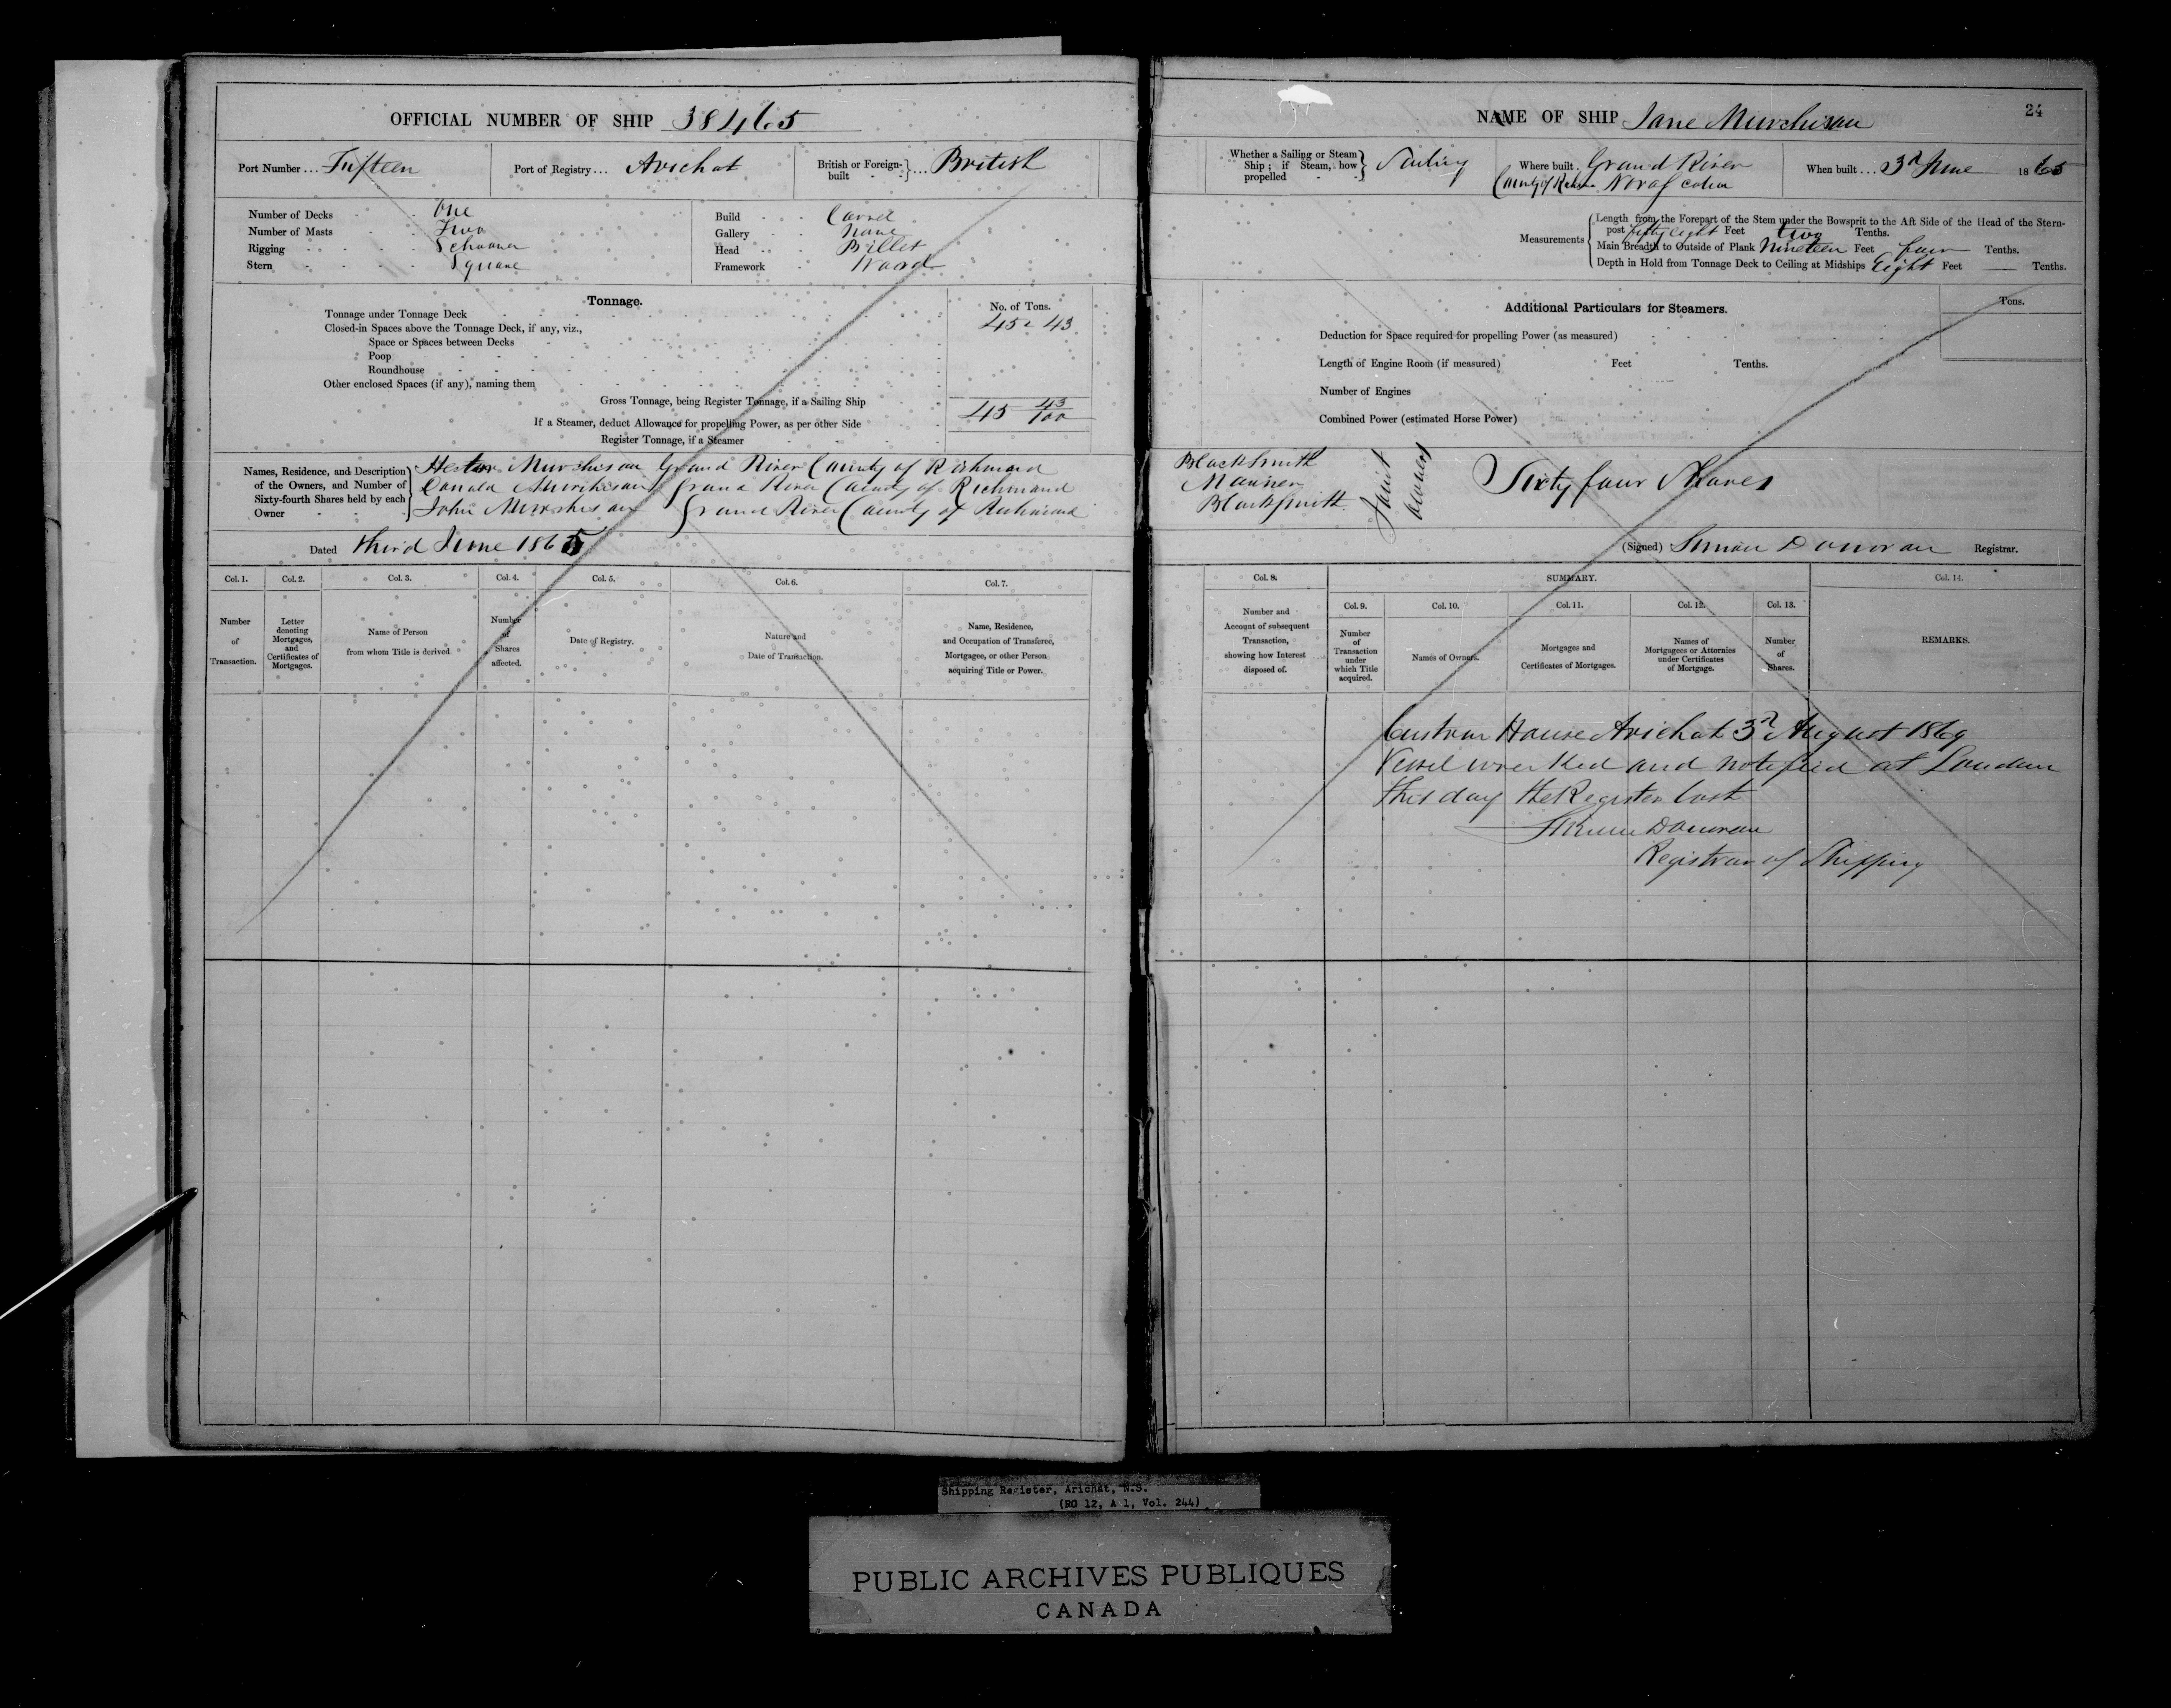 OFFICIAL NUMBER OF SHIP 38465
Port Number ... Fifteen
Port of Registry ... Arichat
British or Foreign-built } ... British
Number of Decks One
Number of Masts Two
Rigging Schooner
Stern Square
Build Carvel
Gallery None
Head Billet
Framework Wood
Tonnage.
No. of Tons.
Tonnage under Tonnage Deck 45 43
Closed-in Spaces above the Tonnage Deck, if any, viz.,
Space or Spaces between Decks
Poop
Roundhouse
Other enclosed Spaces (if any), naming them
Gross Tonnage, being Register Tonnage, if a Sailing Ship 45 43/100
If a Steamer, deduct Allowance for propelling Power, as per other Side
Register Tonnage, if a Steamer
Names, Residence, and Description of the Owners, and Number of Sixty-fourth Shares held by each Owner
Hector Murchison Grand River County of Richmond
Donald Murchison Grand River County of Richmond
John Murchison Grand River County of Richmond
Dated third June 1865
Col. 1.
Col. 2.
Col. 3.
Col. 4.
Col. 5.
Col. 6.
Col. 7.
Number of Transaction.
Letter denoting Mortgages, and Certificates of Mortgages.
Name of Person from whom Title is derived.
Number of Shares affected.
Date of Registry.
Nature and Date of Transaction.
Name, Residence, and Occupation of Transferee, Mortgagee, or other Person acquiring Title or Power.
24
NAME OF SHIP Jane Murchison
Whether a Sailing or Steam Ship; if Steam, how propelled } Sailing
Where built. Grand River
County of Richmond Nova Scotia
When built ... 3d June 1865
Measurements
Length from the Forepart of the Stem under the Bowsprit to the Aft Side of the Head of the Stern-
post fifty eight Feet two Tenths.
Main Breadth to Outside of Plank Nineteen Feet four Tenths.
Depth in Hold from Tonnage Deck to Ceiling at Midships Eight Feet — Tenths.
Additional Particulars for Steamers.
Tons.
Deduction for Space required for propelling Power (as measured)
Length of Engine Room (if measured) Feet Tenths.
Number of Engines
Combined Power (estimated Horse Power)
BlackSmith
Mariner
BlackSmith
Joint owners
Sixty four Shares
(Signed) Simon Donovan Registrar.
Col. 8.
SUMMARY.
Col. 14.
Col. 9.
Col. 10.
Col. 11.
Col. 12.
Col. 13.
Number and Account of subsequent Transaction, showing how Interest disposed of.
Number of Transaction under which Title acquired.
Names of Owners.
Mortgages and Certificates of Mortgages.
Names of Mortgagees or Attornies under Certificates of Mortgage.
Number of Shares.
REMARKS.
Custom House Arichat 3d August 1869
Vessel wrecked and notified at London
this day the Register lost
Simon Donovan
Registrar of Shipping
Shipping Register, Arichat, N.S.
(RG 12, A 1, Vol. 244)
PUBLIC ARCHIVES PUBLIQUES
CANADA